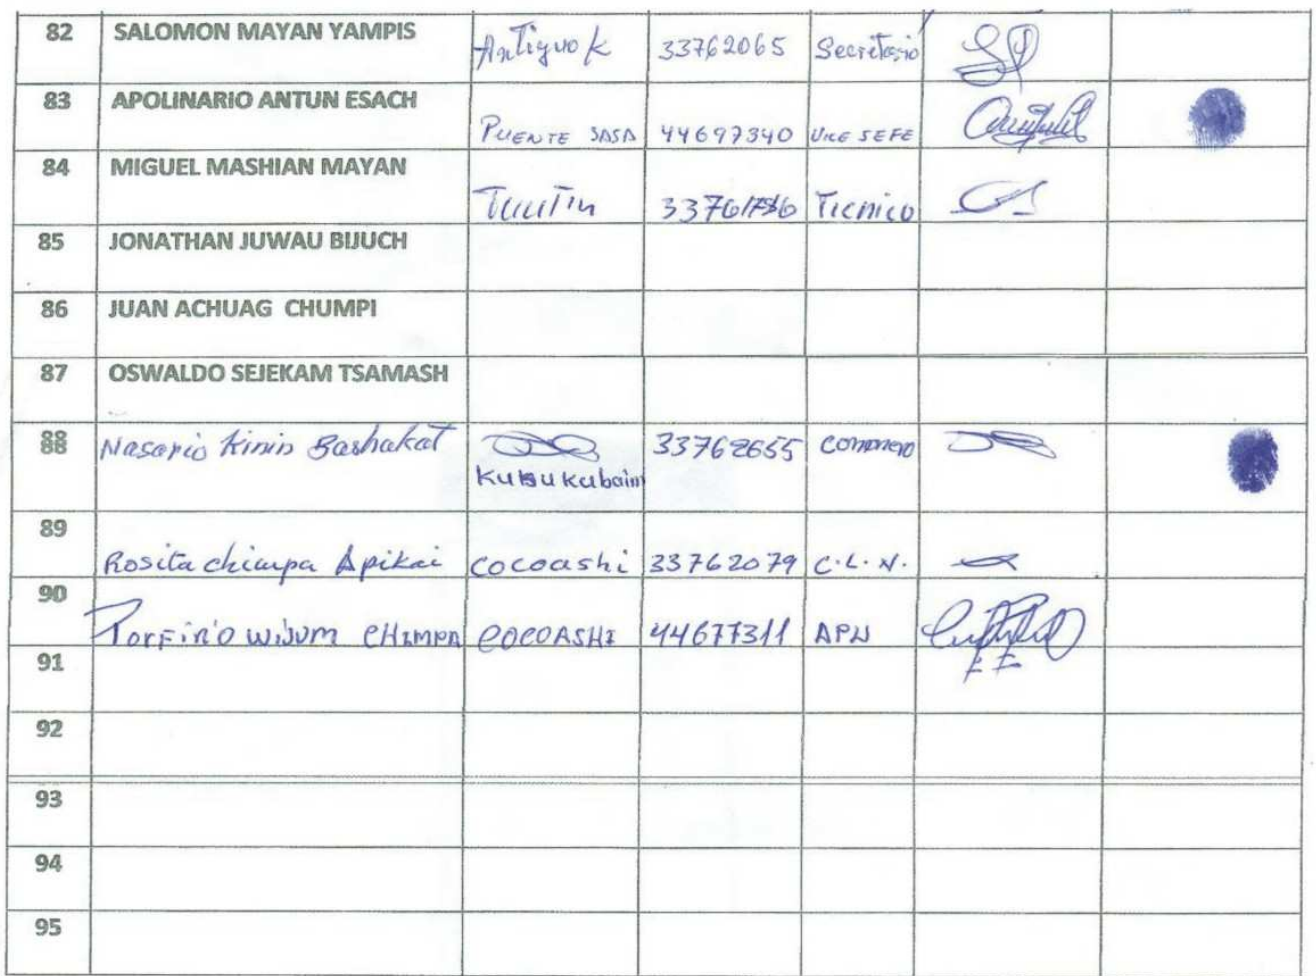 82 SALOMON MAYAN YAMPIS Antiguo K 33762065 Secretario
83 APOLINARIO ANTUN ESACH PUENTE SASA 44697340 VICE JEFE
84 MIGUEL MASHIAN MAYAN Tuutin Tecnico
85 JONATHAN JUWAU BIJUCH
86 JUAN ACHUAG CHUMPI
87 OSWALDO SEJEKAM TSAMASH
88 Nasario Kinin Bashakat 33762655 comonero
Kusukubaim
89
Rosita chimpa Apikai cocoashi 33762079 C.L.N.
90
Porfirio WIJUM CHIMPA COCOASHI 44677311 APN
91
92
93
94
95